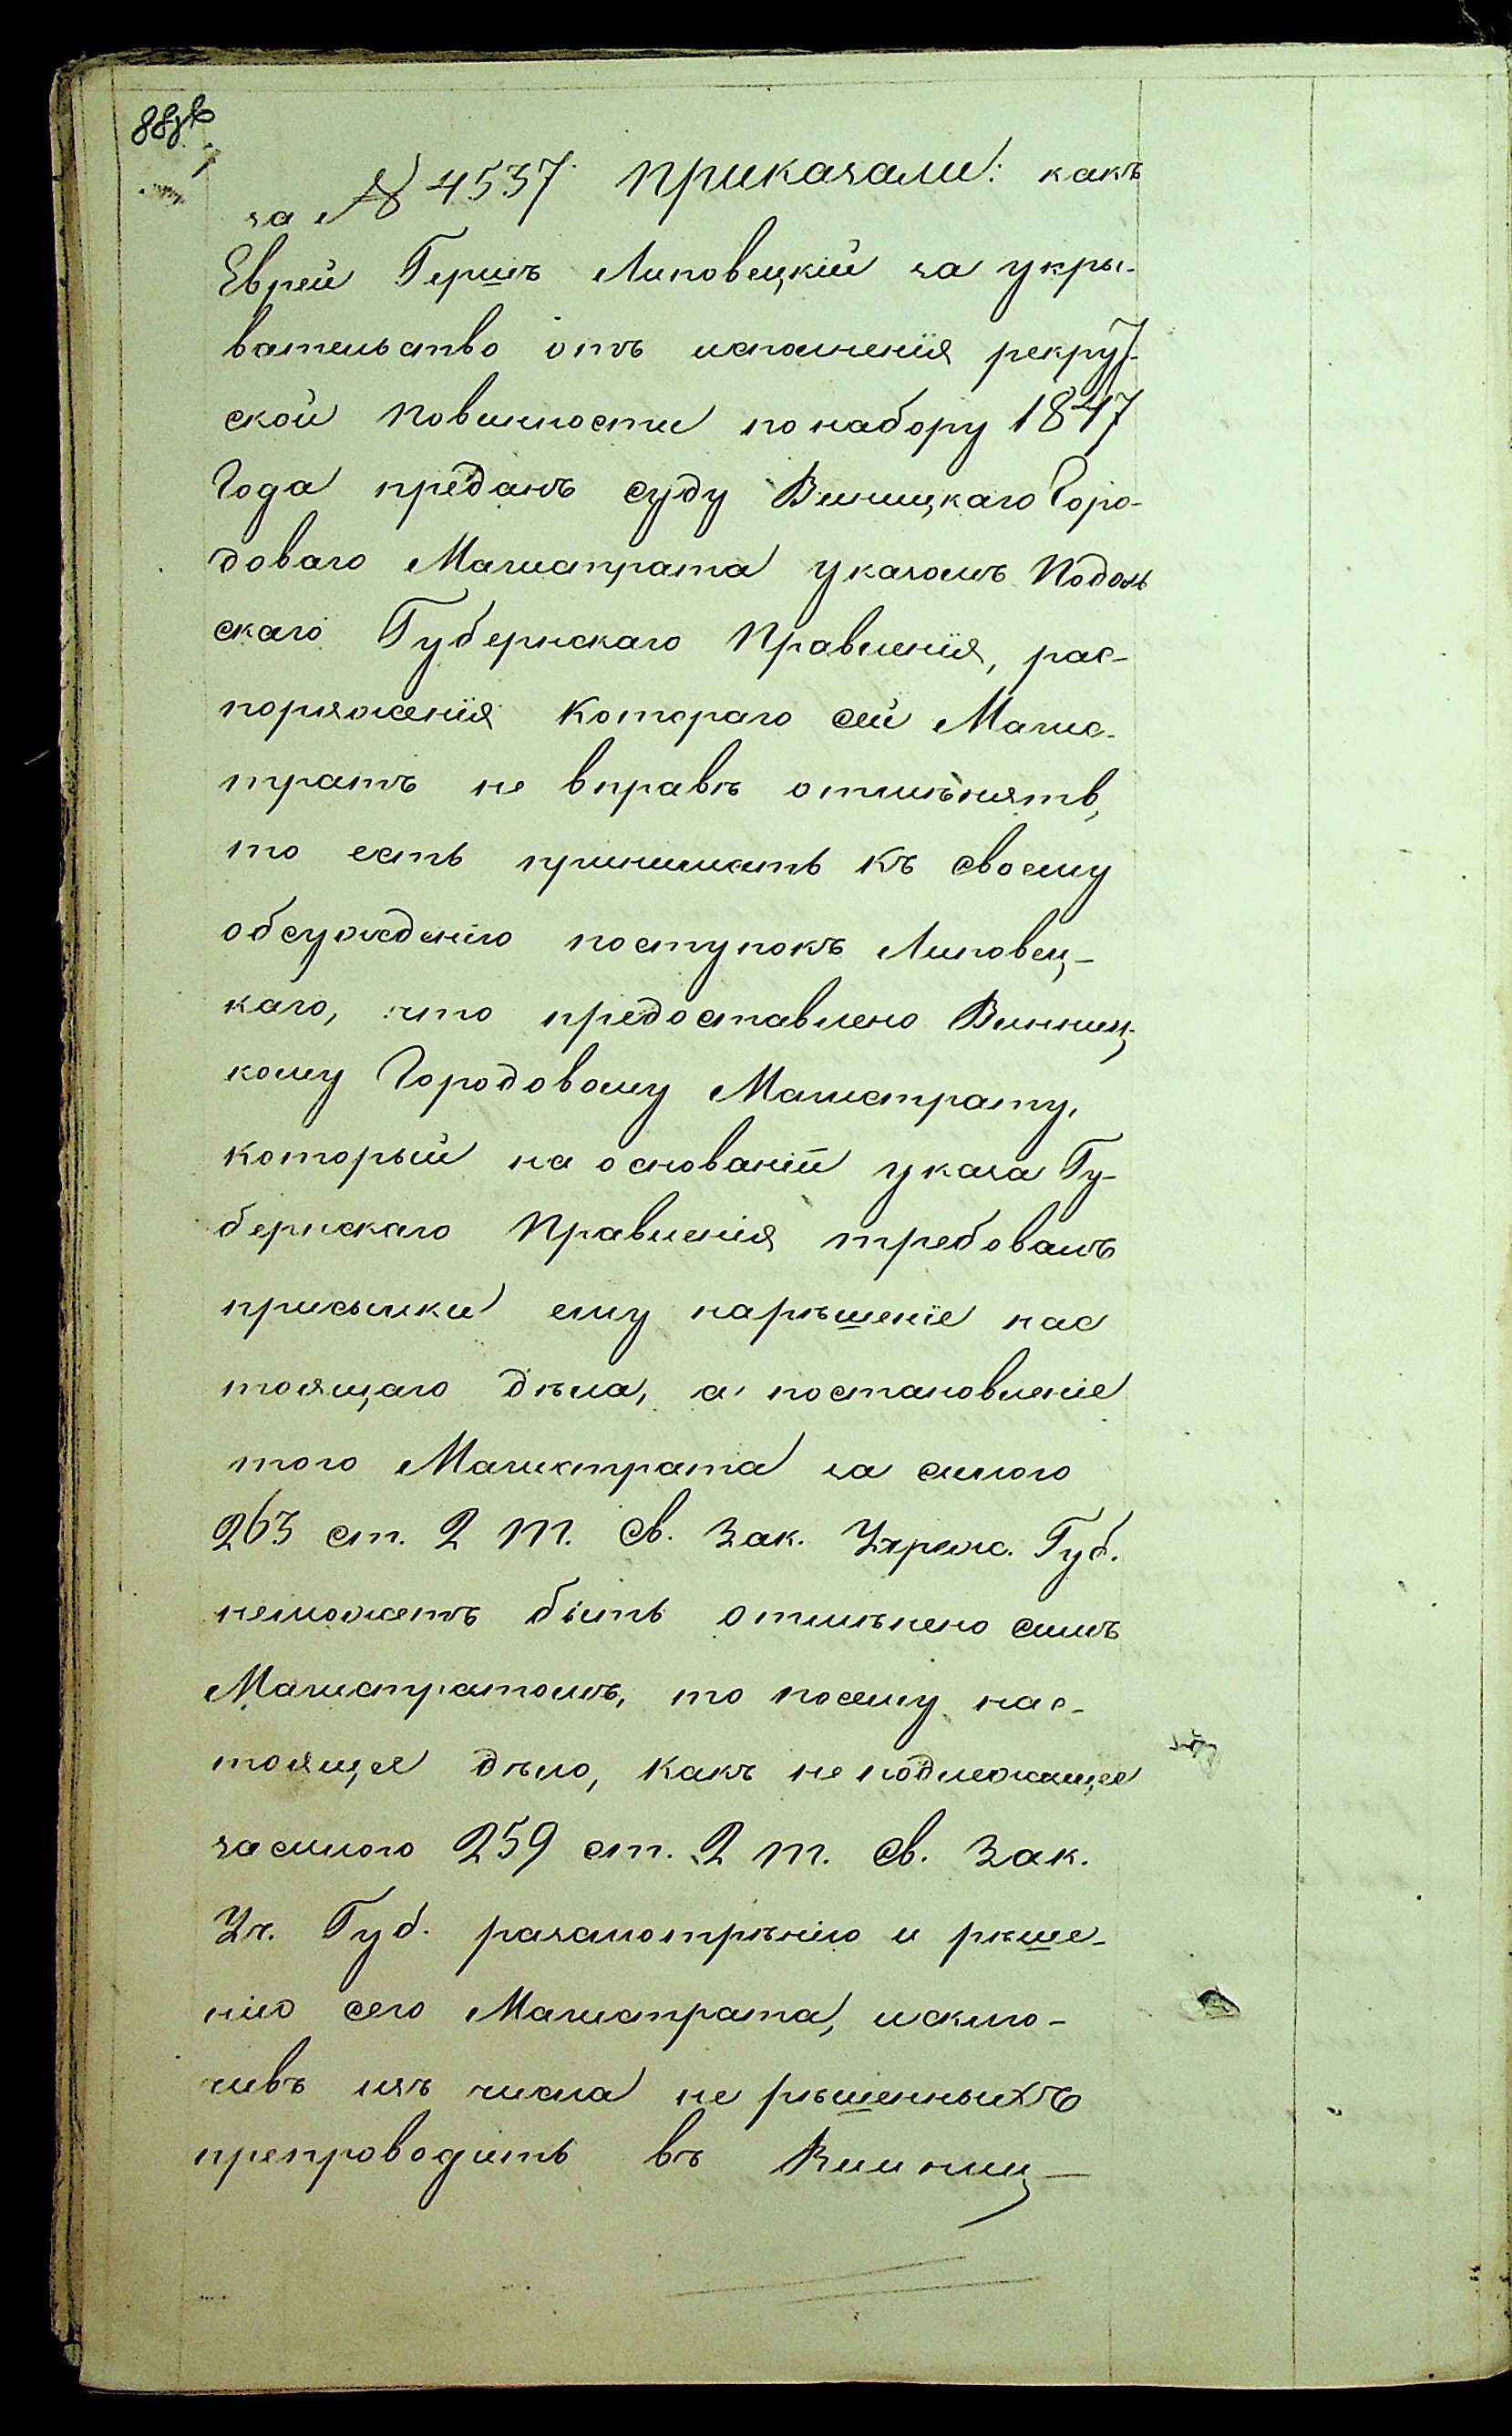 за № 4537 приказали: какъ
Еврей Гершъ Липовецкій за укры-
вательство отъ исполненія рекрут-
ской повинности по набору 1847
Года преданъ суду Винницкаго Горо-
доваго Магистрата указомъ Подоль
скаго Губернскаго Правленія, рас-
поряженія котораго сей Магис-
тратъ не вправѣ отмѣнять,
то есть принимать къ своему
обсужденію поступокъ Липовец-
каго, что предоставлено Винниц-
кому Городовому Магистрату,
который на основаніи указа Гу-
бернскаго Правленія требовалъ
присылки ему нарѣшеніе нас
тоящаго дѣла, а постановленіе
того Магистрата за силою
263 ст. 2 т. Св. Зак. Учреж. Губ.
неможетъ быть отмѣнено симъ
Магистратомъ, то посему нас-
тоящее дѣло, какъ не подлежащее
засилою 259 ст. 2 т. Св. Зак.
Уч. Губ. разсмотрѣнію и рѣше-
нію сего Магистрата, исклю-
чивъ изъ числа не рѣшенныхъ
препроводить въ Винниц-